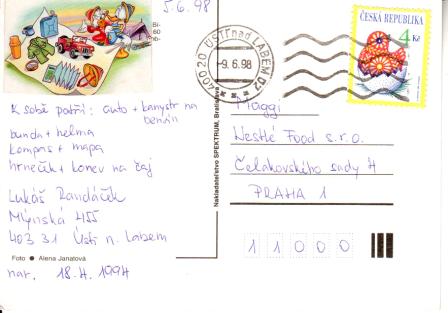 5.6.98
Bi-
60
400 20 ÚSTÍ nad LABEM 02
-9.6.98
ČESKÁ REPUBLIKA
4 Kč
K sobě patří: auto + kanystr na
benzín
bunda + helma
kompas + mapa
hrneček + konev na čaj
Lukáš Randáček
Mlýnská 455
403 31 Ústí n. Labem
Foto ● Alena Janatová
nar. 18.4.1994
Nakladateľstvo SPEKTRUM, Bratislava
Maggi
Nestlé Food s.r.o.
Čelakovského sady 4
PRAHA 1
11000